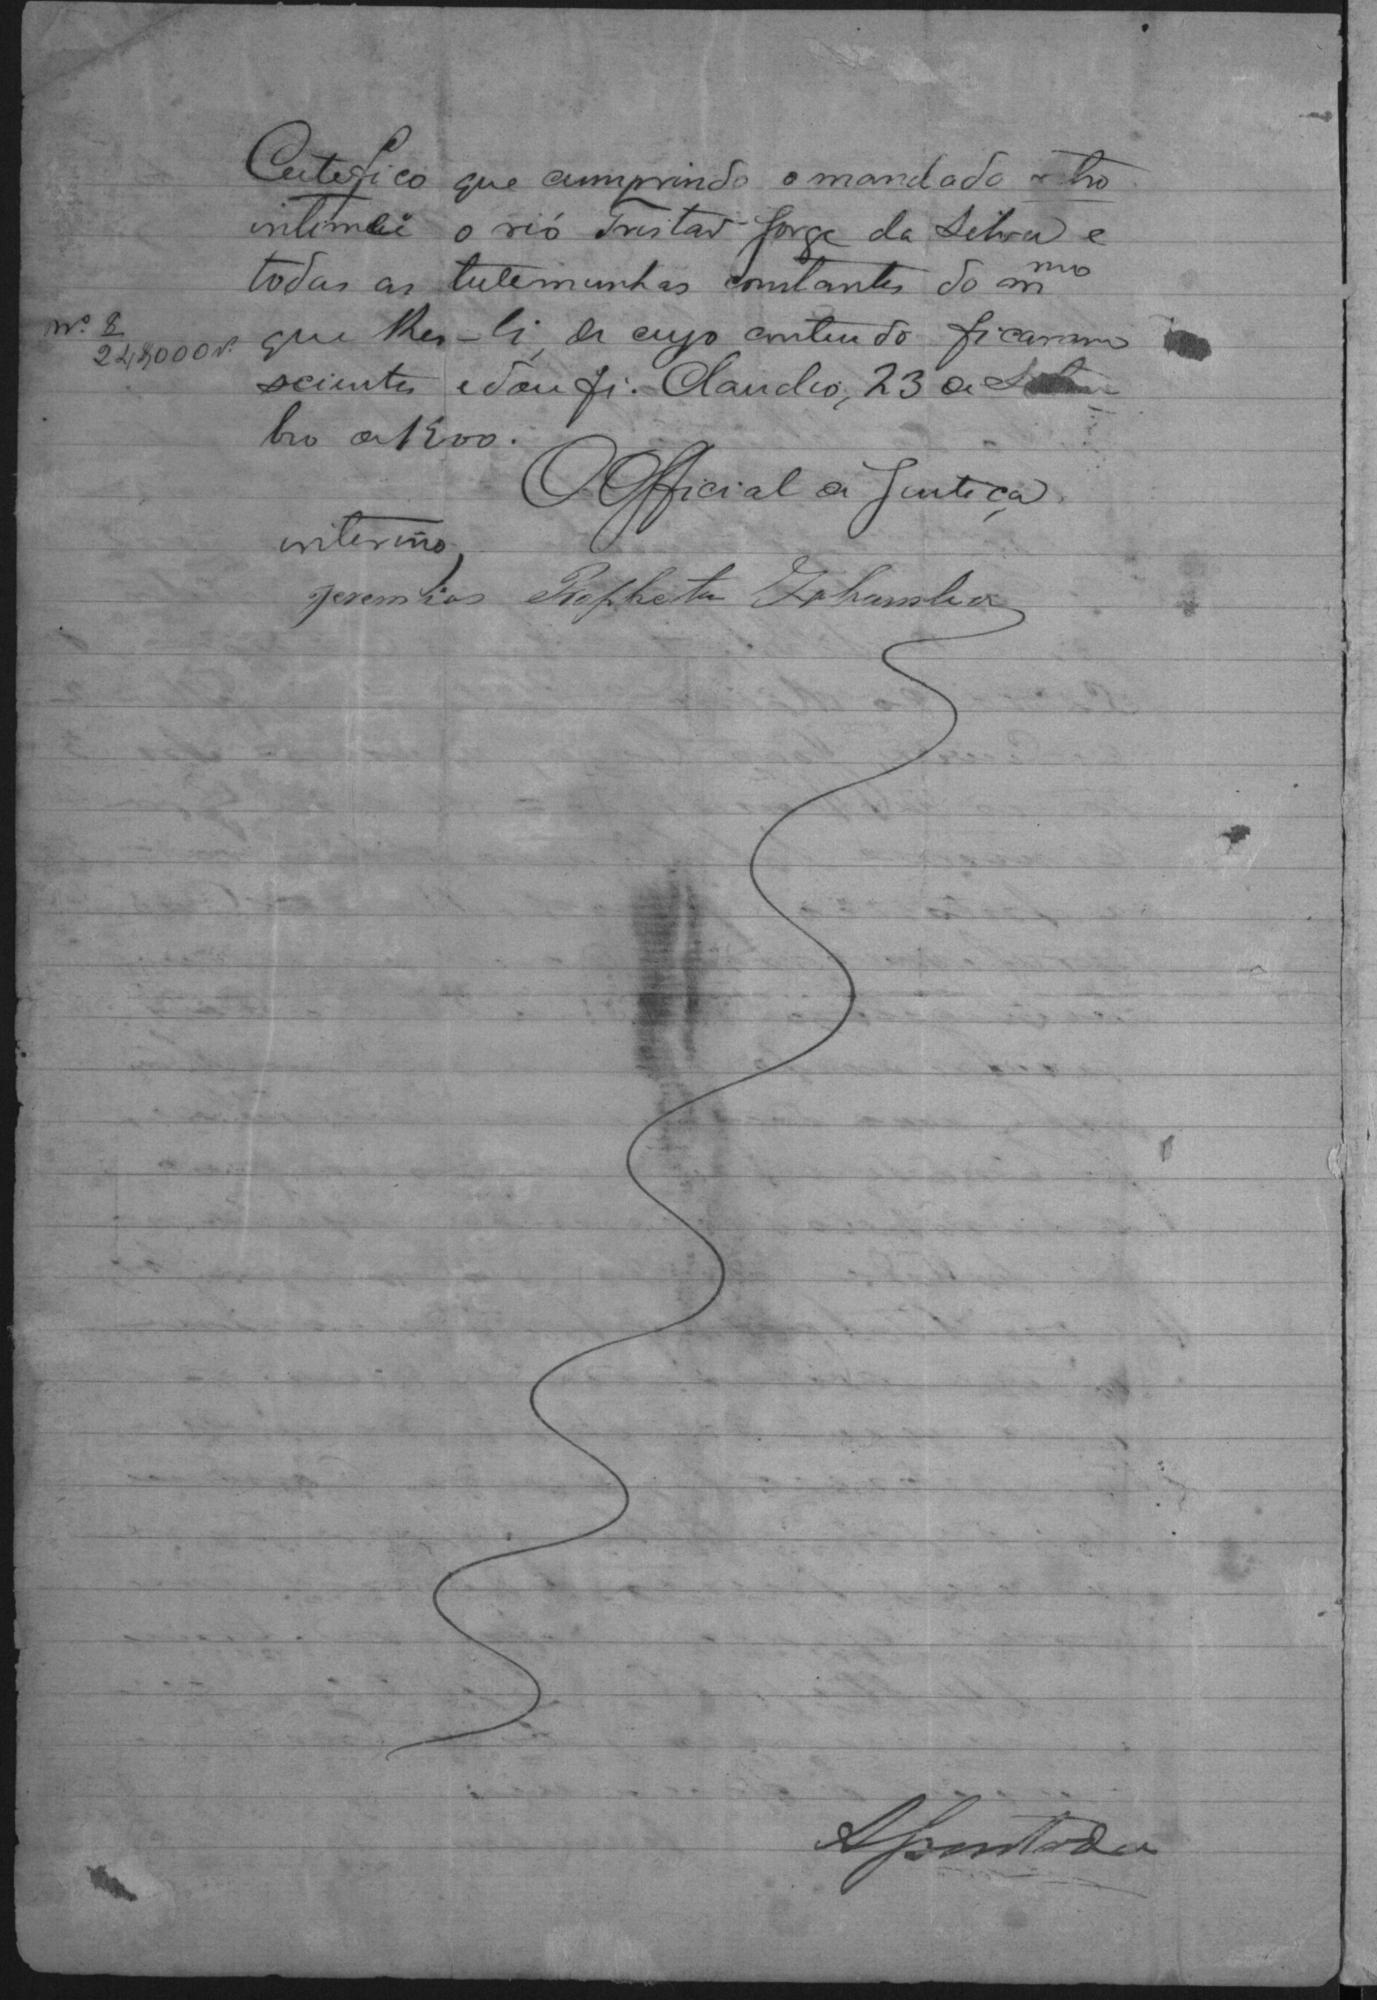 Certefico que cumprindo o mandado retro
intimei o réo Tristão Jorge da Silva e
todas as testemunhas constantes do mmo
Nº 8
24$000 r.
que lhes-li, de cujo conteudo ficaram
scientes e dou fé. Claudio, 23 de Setem
bro de 1900.
O Official de Justiça
interino,
Jeremias Propheta
Apontada